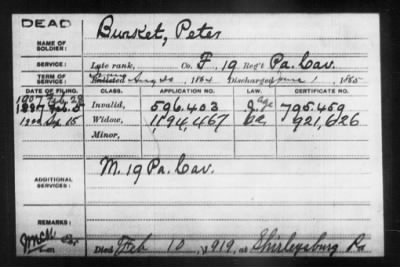 DEAD
NAME OF SOLDIER: Burket, Peter
SERVICE: Late rank, Co. F, 19 Reg't Pa. Cav.
TERM OF SERVICE: Enlisted Aug 20, 1864 Discharged June 1, 1865
DATE OF FILING. CLASS. APPLICATION NO. LAW. CERTIFICATE NO.
1907 Feb 28
Invalid, 596.403 age 795.459
Widow, 1,194,467 921,626
Minor,
ADDITIONAL SERVICES: M. 19 Pa. Cav.
REMARKS:
Died Feb 10, 1919, at Shirleysburg Pa